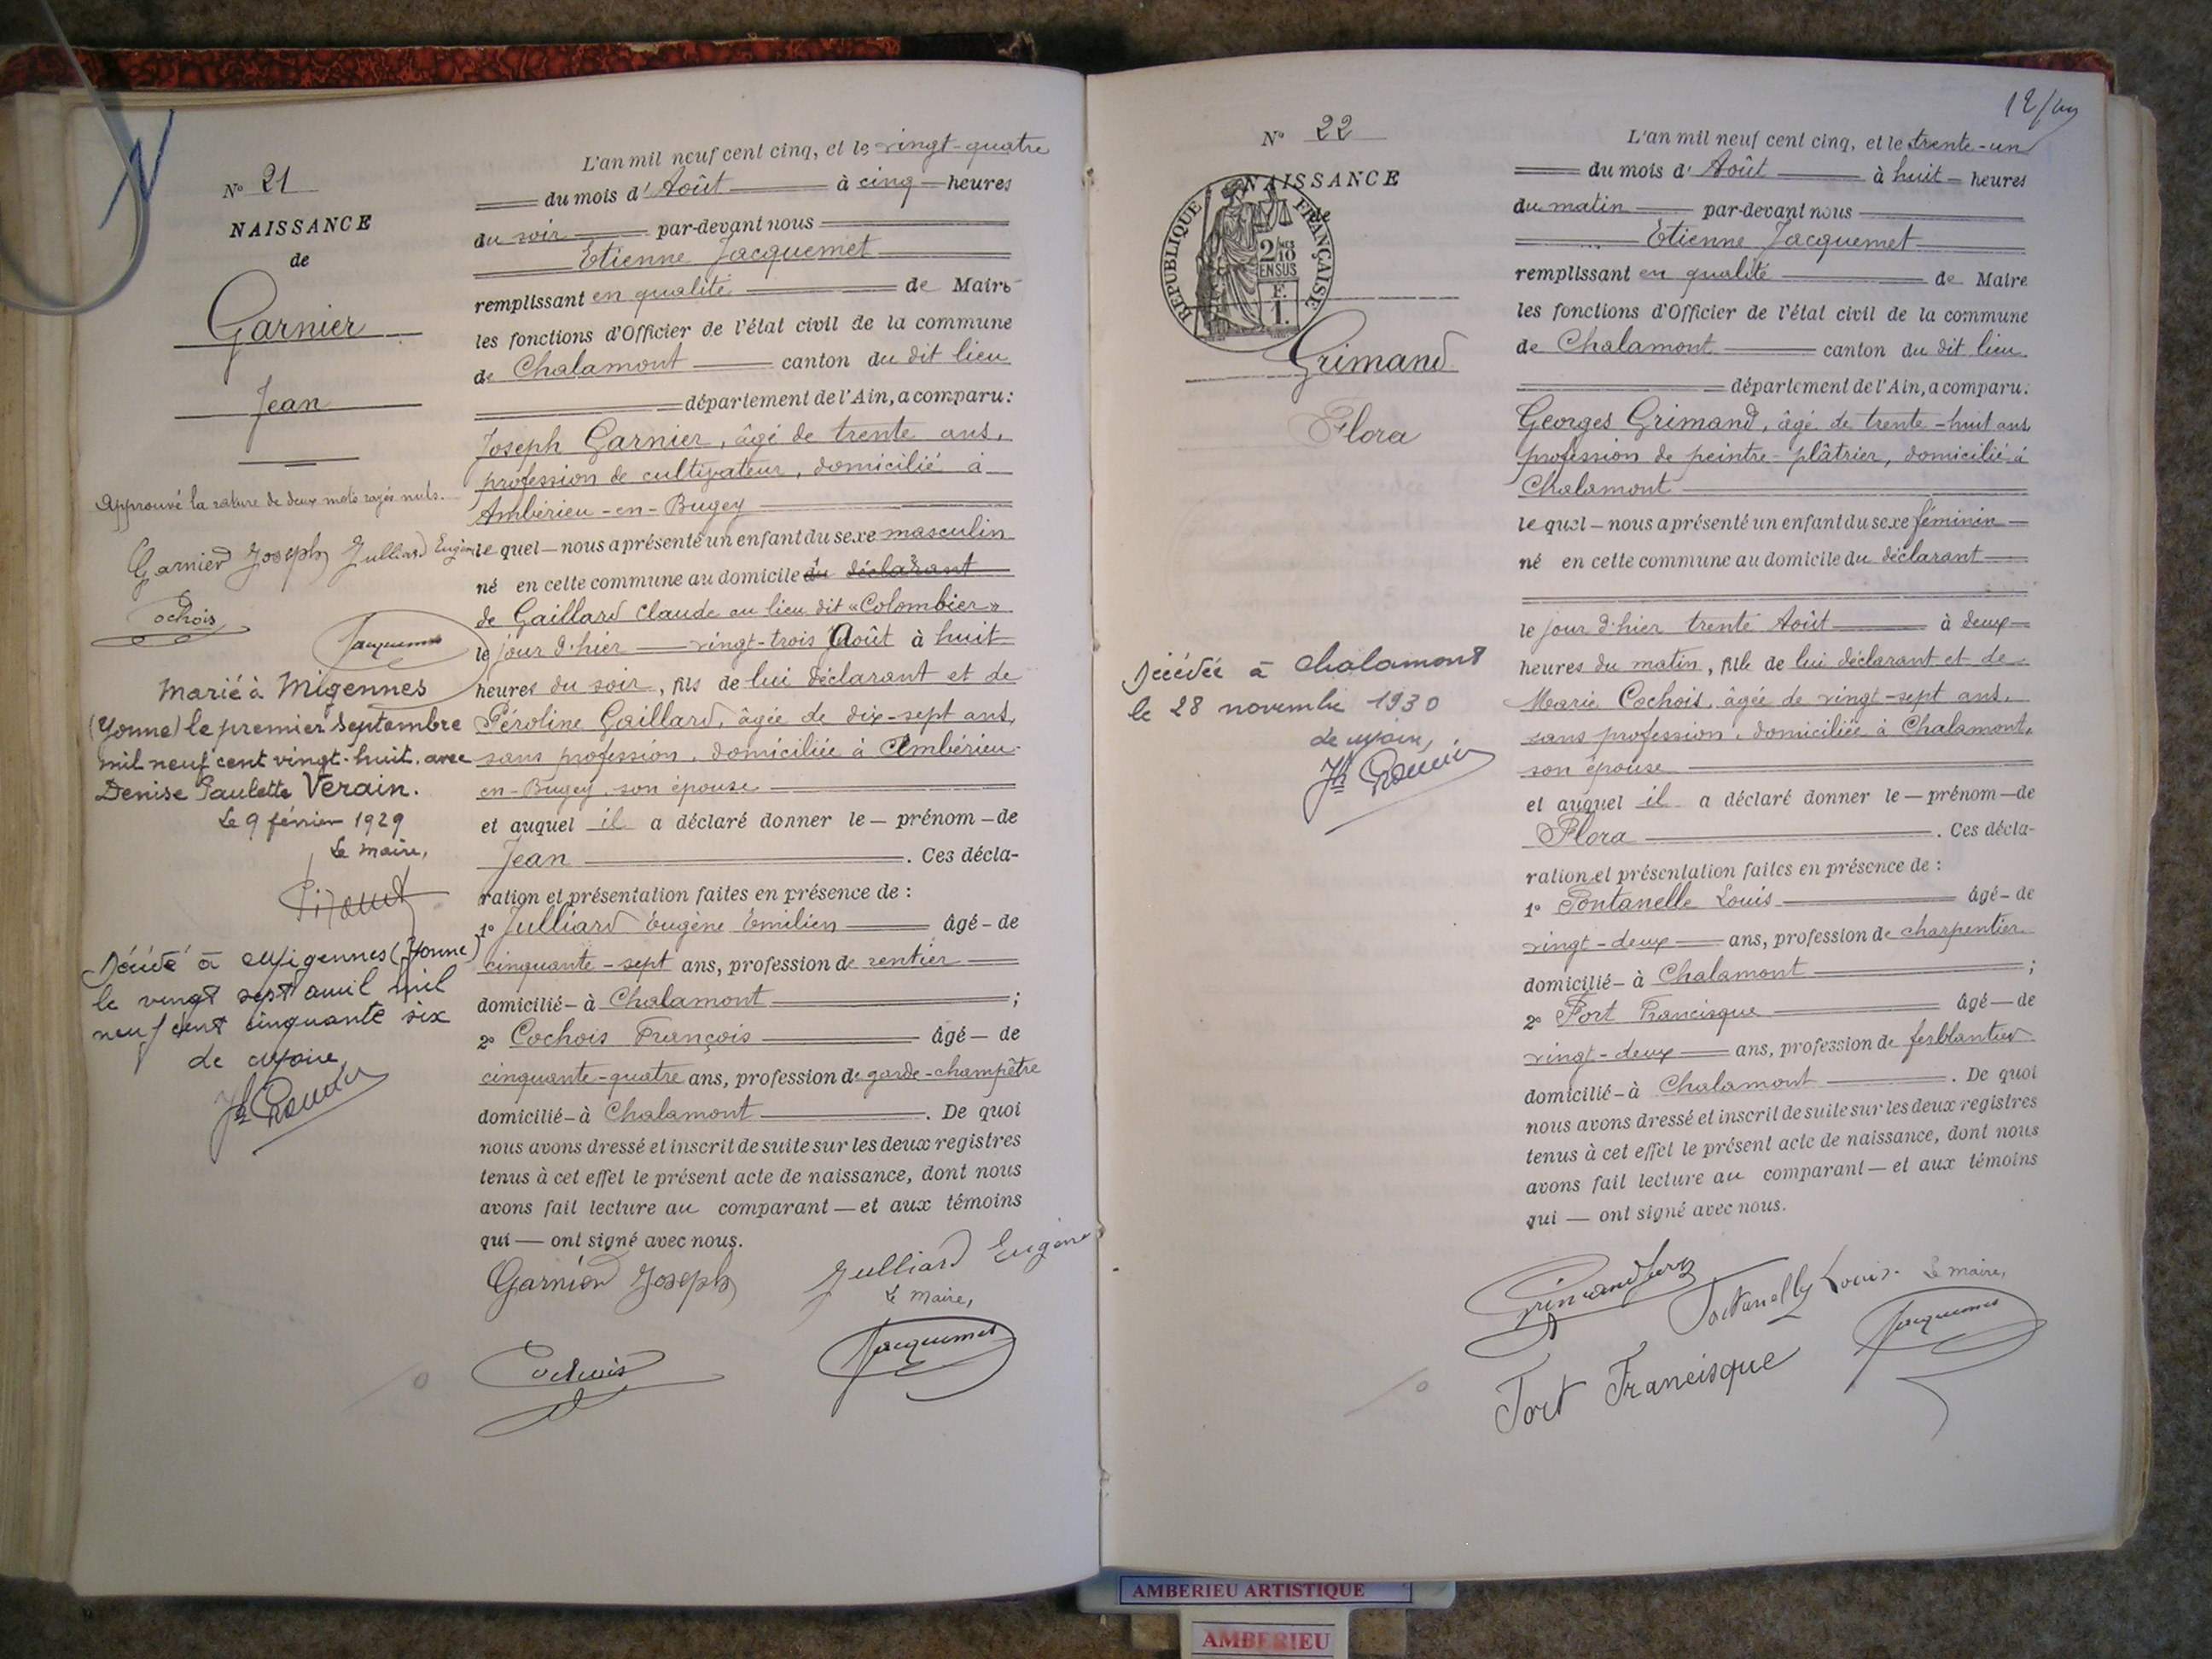 N° 21
NAISSANCE
de
Garnier
Jean
Approuvé la rature de deux mots rayés nuls.
Garnier Joseph Julliard Eugène
Cochois
Jacquemet
Marié à Migennes
(Yonne) le premier septembre
mil neuf cent vingt-huit avec
Denise Paulette Verain.
Le 9 février 1929
Le maire,
Décédé à Migennes (Yonne)
le vingt sept avril mil
neuf cent cinquante six
Le Maire
L'an mil neuf cent cinq, et le vingt-quatre
du mois d'Août à cinq heures
du soir par-devant nous
Etienne Jacquemet
remplissant en qualité de Maire
les fonctions d'Officier de l'état civil de la commune
de Chalamont canton du dit lieu
département de l'Ain, a comparu:
Joseph Garnier, âgé de trente ans,
profession de cultivateur, domicilié à
Ambérieu-en-Bugey
lequel nous a présenté un enfant du sexe masculin
né en cette commune au domicile du déclarant
de Gaillard Claude au lieu dit «Colombier»
le jour d'hier vingt-trois Août à huit
heures du soir, fils de lui déclarant et de
Péroline Gaillard, âgée de dix-sept ans,
sans profession, domiciliée à Ambérieu-
en-Bugey, son épouse
et auquel il a déclaré donner le prénom de
Jean . Ces décla-
ration et présentation faites en présence de :
1° Julliard Eugène Emilien âgé de
cinquante-sept ans, profession de rentier
domicilié à Chalamont ;
2° Cochois François âgé de
cinquante-quatre ans, profession de garde-champêtre
domicilié à Chalamont . De quoi
nous avons dressé et inscrit de suite sur les deux registres
tenus à cet effet le présent acte de naissance, dont nous
avons fait lecture au comparant et aux témoins
qui ont signé avec nous.
Garnier Joseph Julliard Eugène
Le maire,
Cochois Jacquemet
N° 22
NAISSANCE
de
RÉPUBLIQUE FRANÇAISE
2/10
EN SUS
F.
1.
Grimand
Flora
Décédée à Chalamont
le 28 novembre 1930
Le Maire,
L'an mil neuf cent cinq, et le trente-un
du mois d'Août à huit heures
du matin par-devant nous
Etienne Jacquemet
remplissant en qualité de Maire
les fonctions d'Officier de l'état civil de la commune
de Chalamont canton du dit lieu
département de l'Ain, a comparu:
Georges Grimand, âgé de trente-huit ans
profession de peintre-plâtrier, domicilié à
Chalamont
lequel nous a présenté un enfant du sexe féminin
né en cette commune au domicile du déclarant
le jour d'hier trente Août à deux
heures du matin, fille de lui déclarant et de
Marie Cochois, âgée de vingt-sept ans,
sans profession, domiciliée à Chalamont,
son épouse
et auquel il a déclaré donner le prénom de
Flora . Ces décla-
ration et présentation faites en présence de :
1° Fontanelle Louis âgé de
vingt-deux ans, profession de charpentier
domicilié à Chalamont ;
2° Fort Francisque âgé de
vingt-deux ans, profession de ferblantier
domicilié à Chalamont . De quoi
nous avons dressé et inscrit de suite sur les deux registres
tenus à cet effet le présent acte de naissance, dont nous
avons fait lecture au comparant et aux témoins
qui ont signé avec nous.
Fontanelle Louis. Le maire,
Jacquemet
Fort Francisque
AMBERIEU ARTISTIQUE
AMBERIEU